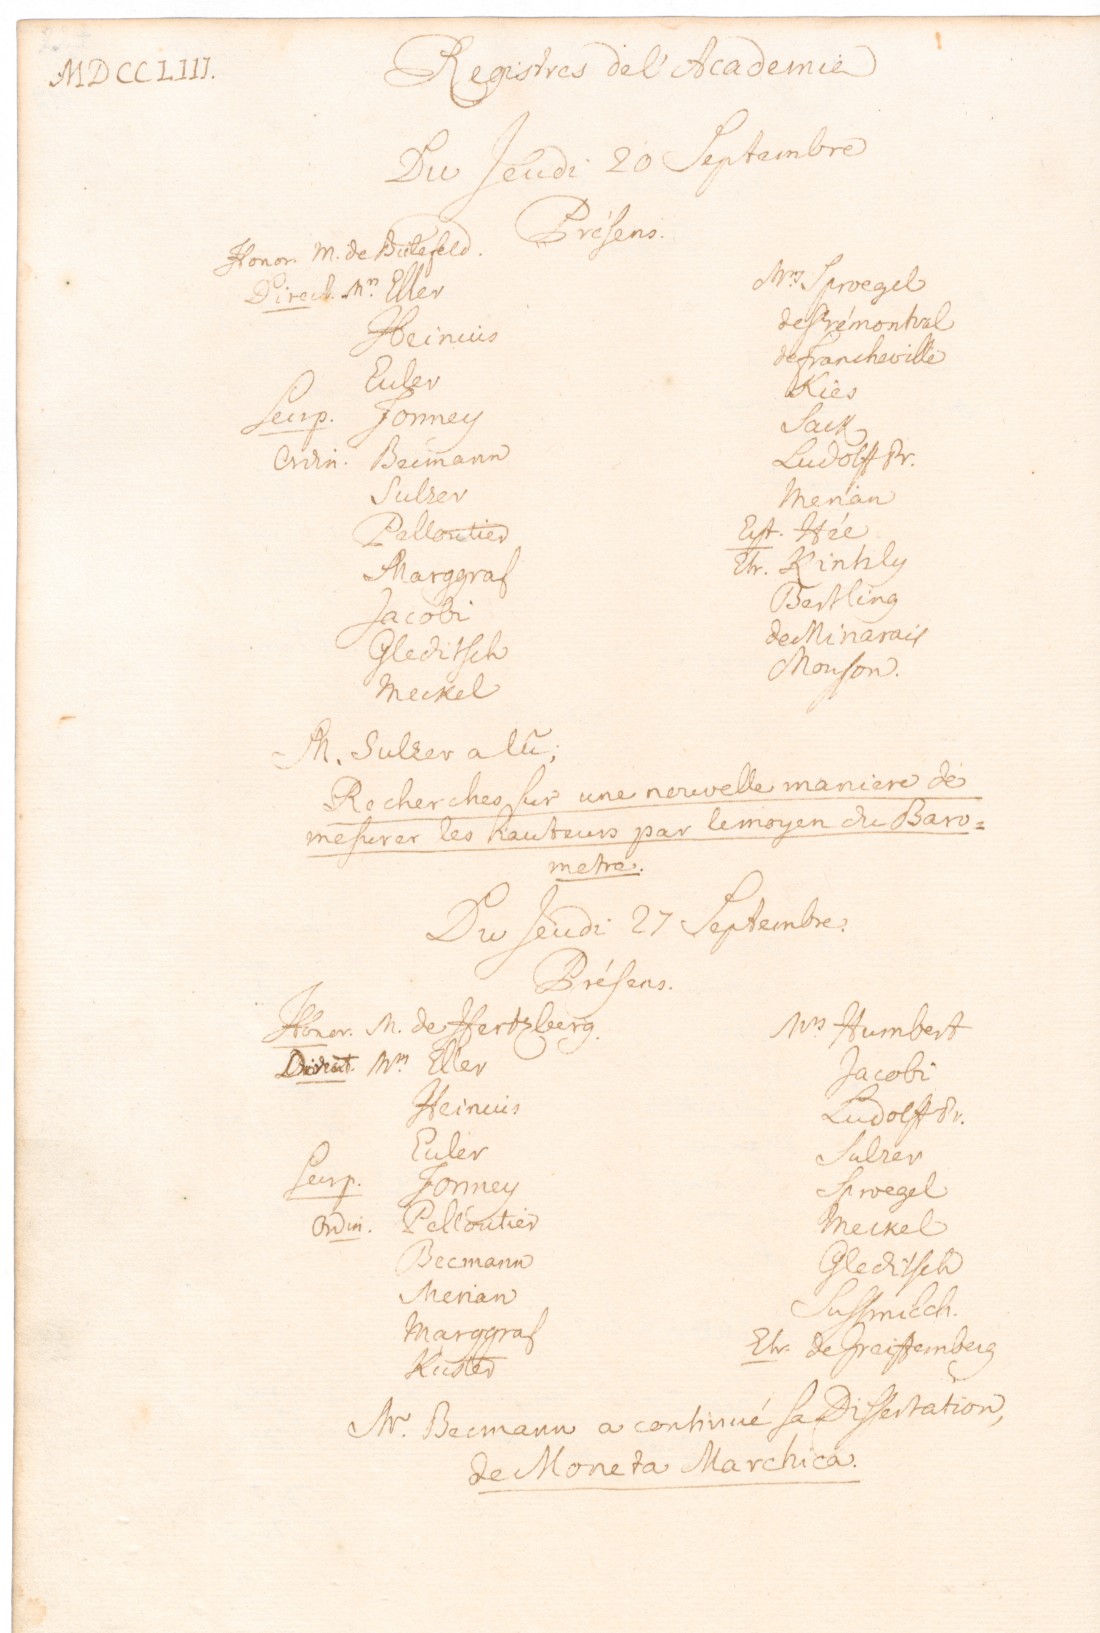 MDCCLIII.
Registres de l'Academie
Du Jeudi 20 Septembre
Présens.
Honor. M. de Bielefeld.
Direct. Mrs. Eller
Heinius
Euler
Secrp. Formey
Ordin. Becmann
Sulzer
Pelloutier
Marggraf
Jacobi
Gleditsch
Meckel
Mrs Sproegel
de Prémontval
de francheville
Kies
Sack
Ludolff Pr.
Merian
Ext. Hée
Etr.
Bertling
de Minarais
Monson.
M. Sulzer a lû;
Recherches sur une nouvelle maniere de
mesurer les hauteurs par le moyen du Baro=
metre.
Du Jeudi 27 Septembre.
Présens.
Honor. M. de Hertzberg.
Direct. Mrs Eller
Heinius
Euler
Secrp. Formey
Ordin. Pelloutier
Becmann
Merian
Marggraf
Kuster
Mrs Humbert
Jacobi
Ludolff Pr.
Sulzer
Sproegel
Meckel
Gleditsch
Sussmilch.
Etr.
Mr. Becmann a continué sa Dissertation,
de Moneta Marchica.